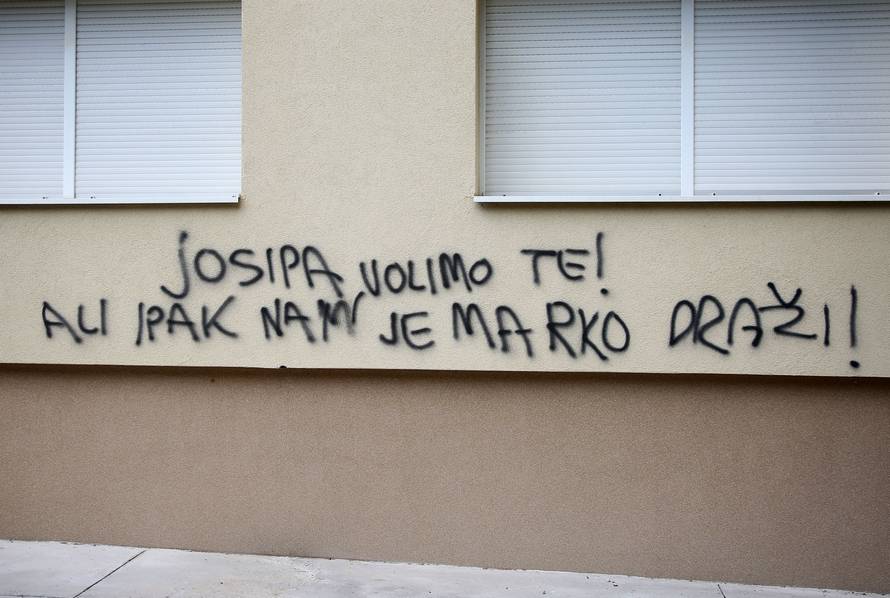 JOSIPA VOLIMO TE!
ALI IPAK NAM JE MARKO DRAŽI!